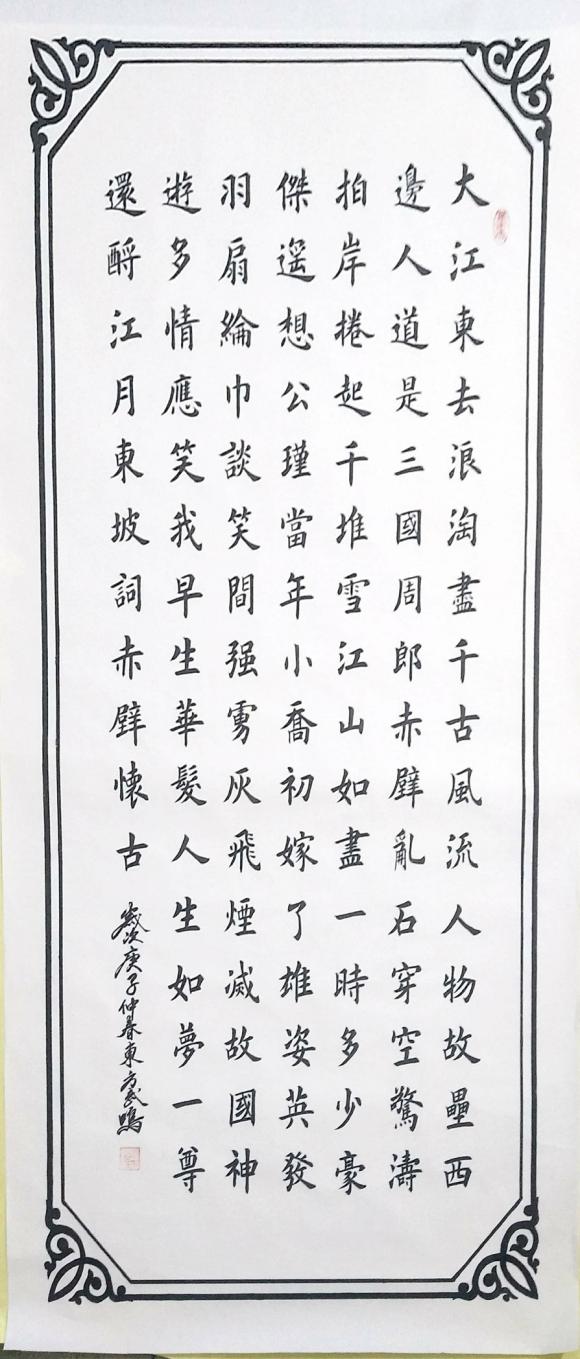 大江東去浪淘盡千古風流人物故壘西
邊人道是三國周郎赤壁亂石穿空驚濤
拍岸捲起千堆雪江山如畫一時多少豪
傑遥想公瑾當年小喬初嫁了雄姿英發
羽扇綸巾談笑間强虜灰飛煙滅故國神
遊多情應笑我早生華髮人生如夢一尊
還酹江月東坡詞赤壁懷古
歲次庚子仲春東方